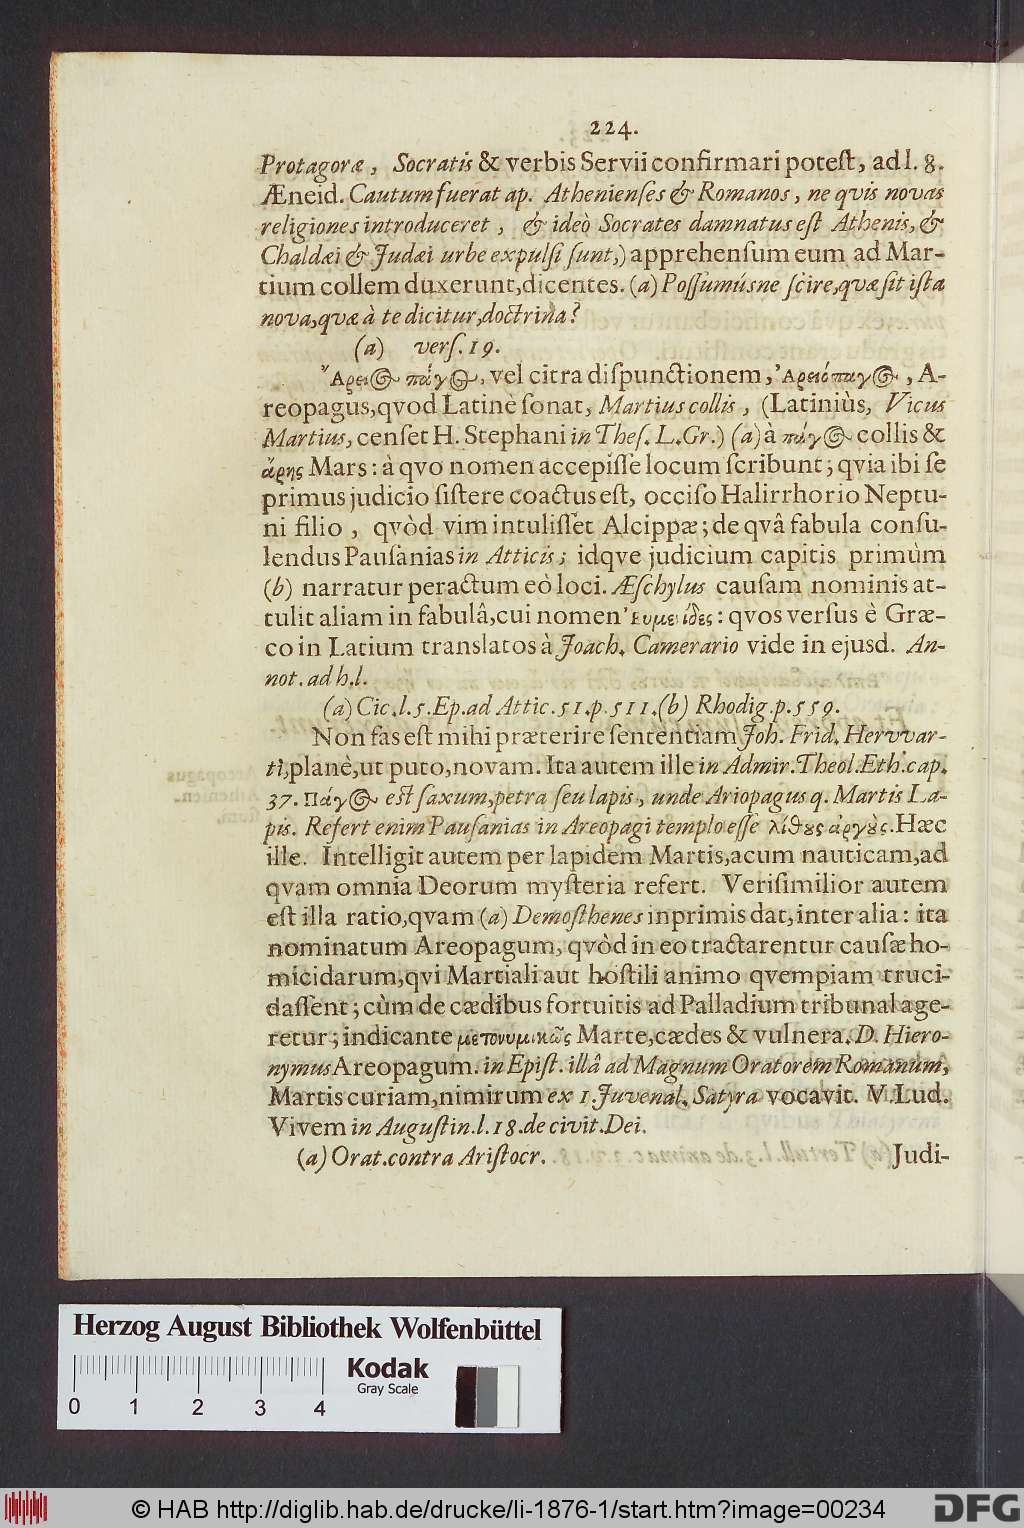 224.
Protagoræ, Socratis & verbis Servii confirmari poteſt, ad l. 8.
Æneid. Cautum fuerat ap. Athenienſes & Romanos, ne qvis novas
religiones introduceret, & ideò Socrates damnatus eſt Athenis, &
Chaldæi & Judæi urbe expulſi ſunt,) apprehenſum eum ad Mar-
tium collem duxerunt, dicentes. (a) Poſſumúsne ſcire, quæ ſit iſta
nova, quæ à te dicitur, doctrina?
(a) verſ. 19.
Ἄρειος πάγος, vel citra diſpunctionem, Ἀρειόπαγος, A-
reopagus, qvod Latinè ſonat, Martius collis, (Latiniùs, Vicus
Martius, cenſet H. Stephani in Theſ. L. Gr.) (a) à πάγος collis &
ἄρης Mars: à qvo nomen accepiſſe locum ſcribunt; qvia ibi ſe
primus judicio ſiſtere coactus eſt, occiſo Halirrhorio Neptu-
ni filio, qvòd vim intuliſſet Alcippæ; de qvâ fabula conſu-
lendus Pauſanias in Atticis; idqve judicium capitis primùm
(b) narratur peractum eò loci. Æſchylus cauſam nominis at-
tulit aliam in fabulâ, cui nomen Ἐυμενίδες: qvos verſus è Græ-
co in Latium translatos à Joach. Camerario vide in ejusd. An-
not. ad h. l.
(a) Cic. l. 5. Ep. ad Attic. 51. p. 511. (b) Rhodig. p. 559.
Non fas eſt mihi præterire ſententiam Joh. Frid. Hervvar-
ti, planè, ut puto, novam. Ita autem ille in Admir. Theol. Eth. cap.
37. Πάγος eſt ſaxum, petra ſeu lapis, unde Ariopagus q. Martis La-
pis. Refert enim Pauſanias in Areopagi templo eſſe λίθους ἀργοὺς. Hæc
ille. Intelligit autem per lapidem Martis, acum nauticam, ad
qvam omnia Deorum myſteria refert. Veriſimilior autem
eſt illa ratio, qvam (a) Demoſthenes inprimis dat, inter alia: ita
nominatum Areopagum, qvòd in eo tractarentur cauſæ ho-
micidarum, qvi Martiali aut hoſtili animo qvempiam truci-
daſſent; cùm de cædibus fortuitis ad Palladium tribunal age-
retur; indicante μετονυμικῶς Marte, cædes & vulnera. D. Hiero-
nymus Areopagum. in Epiſt. illâ ad Magnum Oratorem Romanum,
Martis curiam, nimirum ex 1. Juvenal. Satyra vocavit. V. Lud.
Vivem in Auguſtin. l. 18. de civit. Dei.
(a) Orat. contra Ariſtocr. Judi-
Herzog August Bibliothek Wolfenbüttel
Kodak
Gray Scale
0 1 2 3 4
© HAB http://diglib.hab.de/drucke/li-1876-1/start.htm?image=00234
DFG